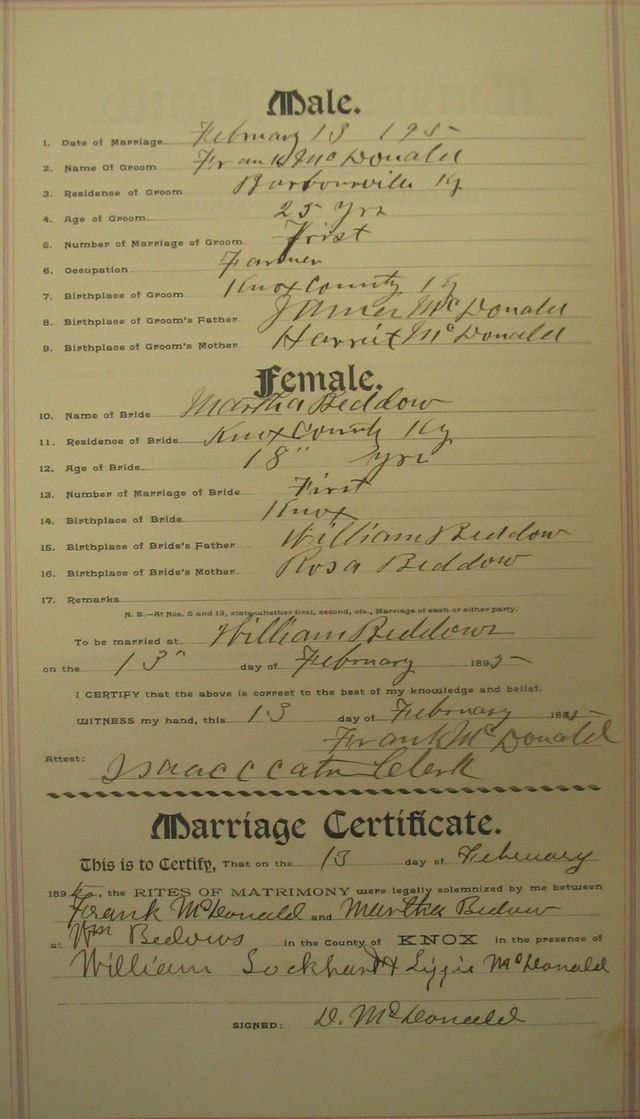 Male.
1. Date of Marriage February 13 195
2. Name Of Groom Frank McDonald
3. Residence of Groom Barbourville Ky
4. Age of Groom 25 yrs
5. Number of Marriage of Groom First
6. Occupation Farmer
7. Birthplace of Groom Knox County Ky
8. Birthplace of Groom's Father James McDonald
9. Birthplace of Groom's Mother Harriet McDonald
Female.
10. Name of Bride Martha Beddow
11. Residence of Bride Knox County Ky
12. Age of Bride 18" yrs
13. Number of Marriage of Bride First
14. Birthplace of Bride Knox
15. Birthplace of Bride's Father William Beddow
16. Birthplace of Bride's Mother Rosa Beddow
17. Remarks
N. B.—At Nos. 5 and 13, state whether first, second, etc., Marriage of each or either party.
To be married at William Beddows
on the 13" day of February 1895
I CERTIFY that the above is correct to the best of my knowledge and belief.
WITNESS my hand, this 13 day of February 1895
Frank McDonald
Attest: Isaac C Clerk
Marriage Certificate.
This is to Certify, That on the 13 day of February
1895, the RITES OF MATRIMONY were legally solemnized by me between
Frank McDonald and Martha Bedow
at Wm Bedows in the County of KNOX in the presence of
William Lockhart & Lizzie McDonald
SIGNED: D. McDonald